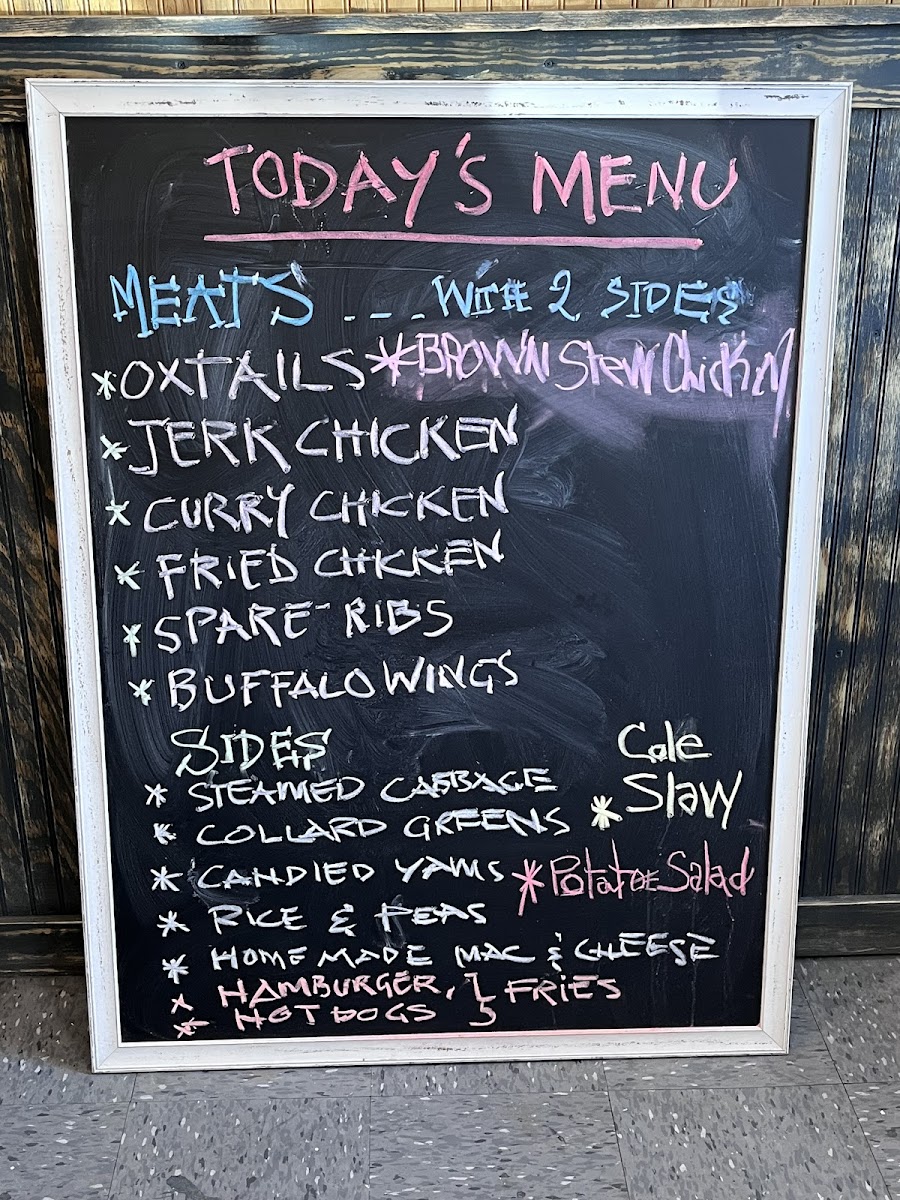 TODAY'S MENU
MEATS _ _ _ WITH 2 SIDES
*OXTAILS *BROWN Stew Chicken
*JERK CHICKEN
*CURRY CHICKEN
*FRIED CHICKEN
*SPARE-RIBS
*BUFFALO WINGS
SIDES
* STEAMED CABBAGE
* COLLARD GREENS
* Cole Slaw
* CANDIED YAMS
* Potatoe Salad
* RICE & PEAS
* HOME MADE MAC & CHEESE
* HAMBURGER, } FRIES
* HOT DOGS